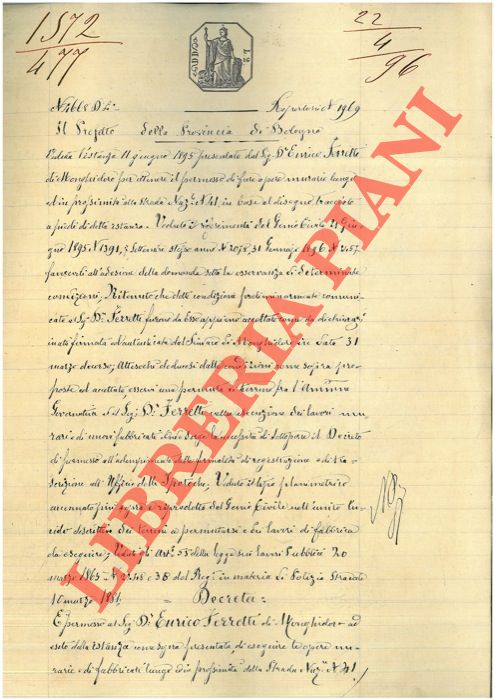 1572
477
22
4
96
N. 4668 Di. 1a Repertorio N 1969
Il Prefetto della Provincia di Bologna
Veduta l'istanza 11 giugno 1895 presentata dal Sig. Dr. Enrico Ferretti
di Monghidoro per ottenere il permesso di fare opere murarie lungo
ed in prossimità alla strada Naz. N. 41, in base al disegno tracciato
a piedi di detta istanza. Veduto i riferimenti del Genio Civile 24 Giu-
gno 1895 N. 1391, 7 Settembre stesso anno N. 2078, 31 Gennajo 1896 N. 257
favorevoli all'adesione della domanda sotto la osservanza di determinate
condizioni, Ritenuto che dette condizioni comuni-
cate al Sig. Dr. Ferretti furono da Esso appieno accettate come da dichiarazi
firmata ed autenticata dal Sindaco di Monghidoro in data 31
marzo decorso, Attesochè deducesi dalle condizioni come sopra pro-
poste ed accettate, esservi una permuta di terreno fra l'Ammne
Governativa ed il Sig. Dr. Ferretti nella esecuzione dei lavori mu-
rari e di nuovi fabbricati donde sorge la necessità di sottoporre il Decreto
di permesso all'adempimento delle formalità di registrazione e di tra-
scrizione all'Ufficio delle Ipoteche, Veduto il tipo planimetrico
accennato più sopra e riprodotto dal Genio Civile nell'unito lu-
cido descrittivo dei terreni a permutarsi e dei lavori di fabbrica
da eseguire; Veduti gli Art. 55 della legge sui lavori Pubblici 20
marzo 1865 N. 2248 e 38 del Reg. in materia di Polizia Stradale
10 marzo 1881.
Decreta:
È permesso al Sig. Dr. Enrico Ferretti di Monghidoro ad
esito della istanza come sopra presentata di eseguire le opere mu-
rarie e di fabbricati lungo ed in prossimità della Strada Naz. N. 41,
LIBRERIA PIANI